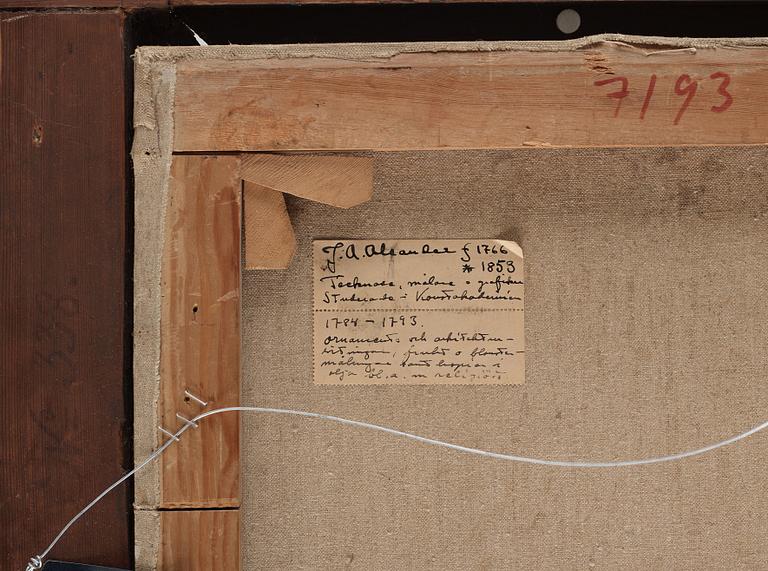 7193
J. A. Alexander f 1766
* 1853
Tecknare, målare o grafiker
Studerade i Konstakademien
1784 – 1793.
Ornaments och arkitektur-
ritningar, frukt o blomster-
målningar samt kopior i
olja bl. a. m religiös